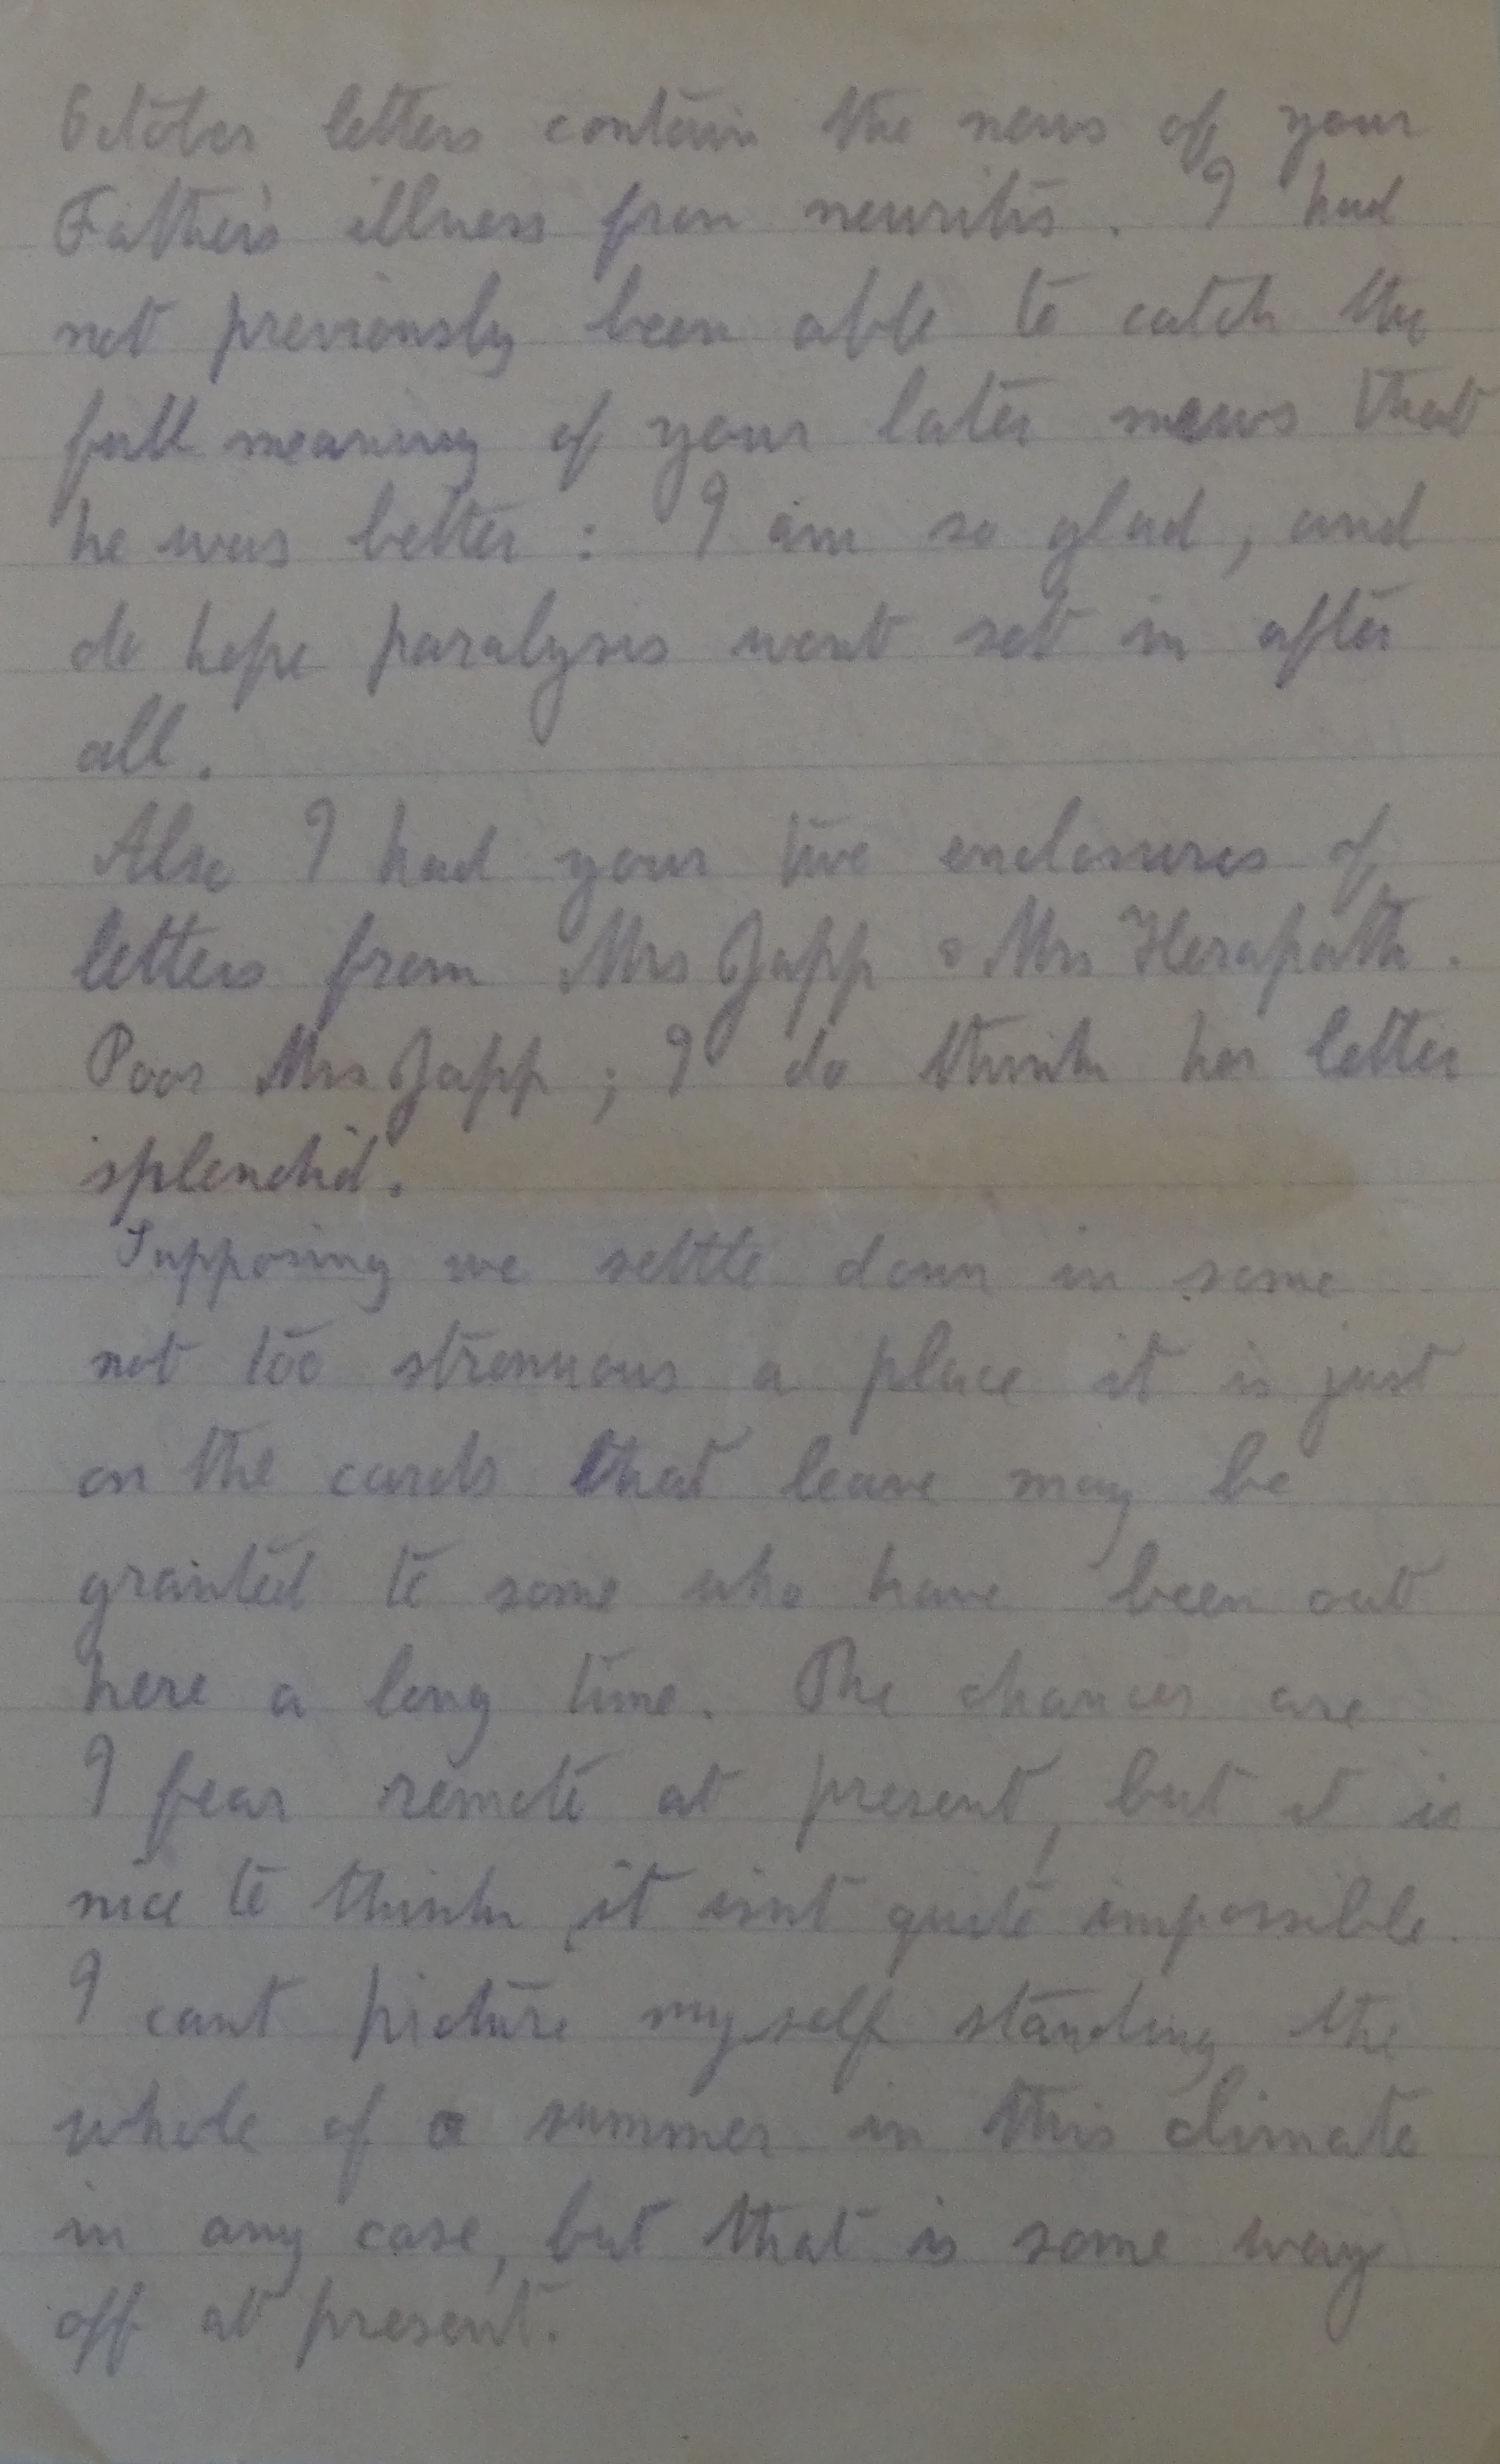 October letters contain the news of your
Father's illness from neuritis. I had
not previously been able to catch the
full meaning of your later news that
he was better: I am so glad, and
do hope paralysis wont set in after
all.
Also I had your two enclosures of
letters from Mrs Japp & Mrs Herapath.
Poor Mrs Japp; I do think her letter
splendid.
Supposing we settle down in some
not too strenuous a place it is just
on the cards that leave may be
granted to some who have been out
here a long time. The chances are
I fear remote at present, but it is
nice to think it isnt quite impossible.
I cant picture myself standing the
whole of a summer in this climate
in any case, but that is some way
off at present.